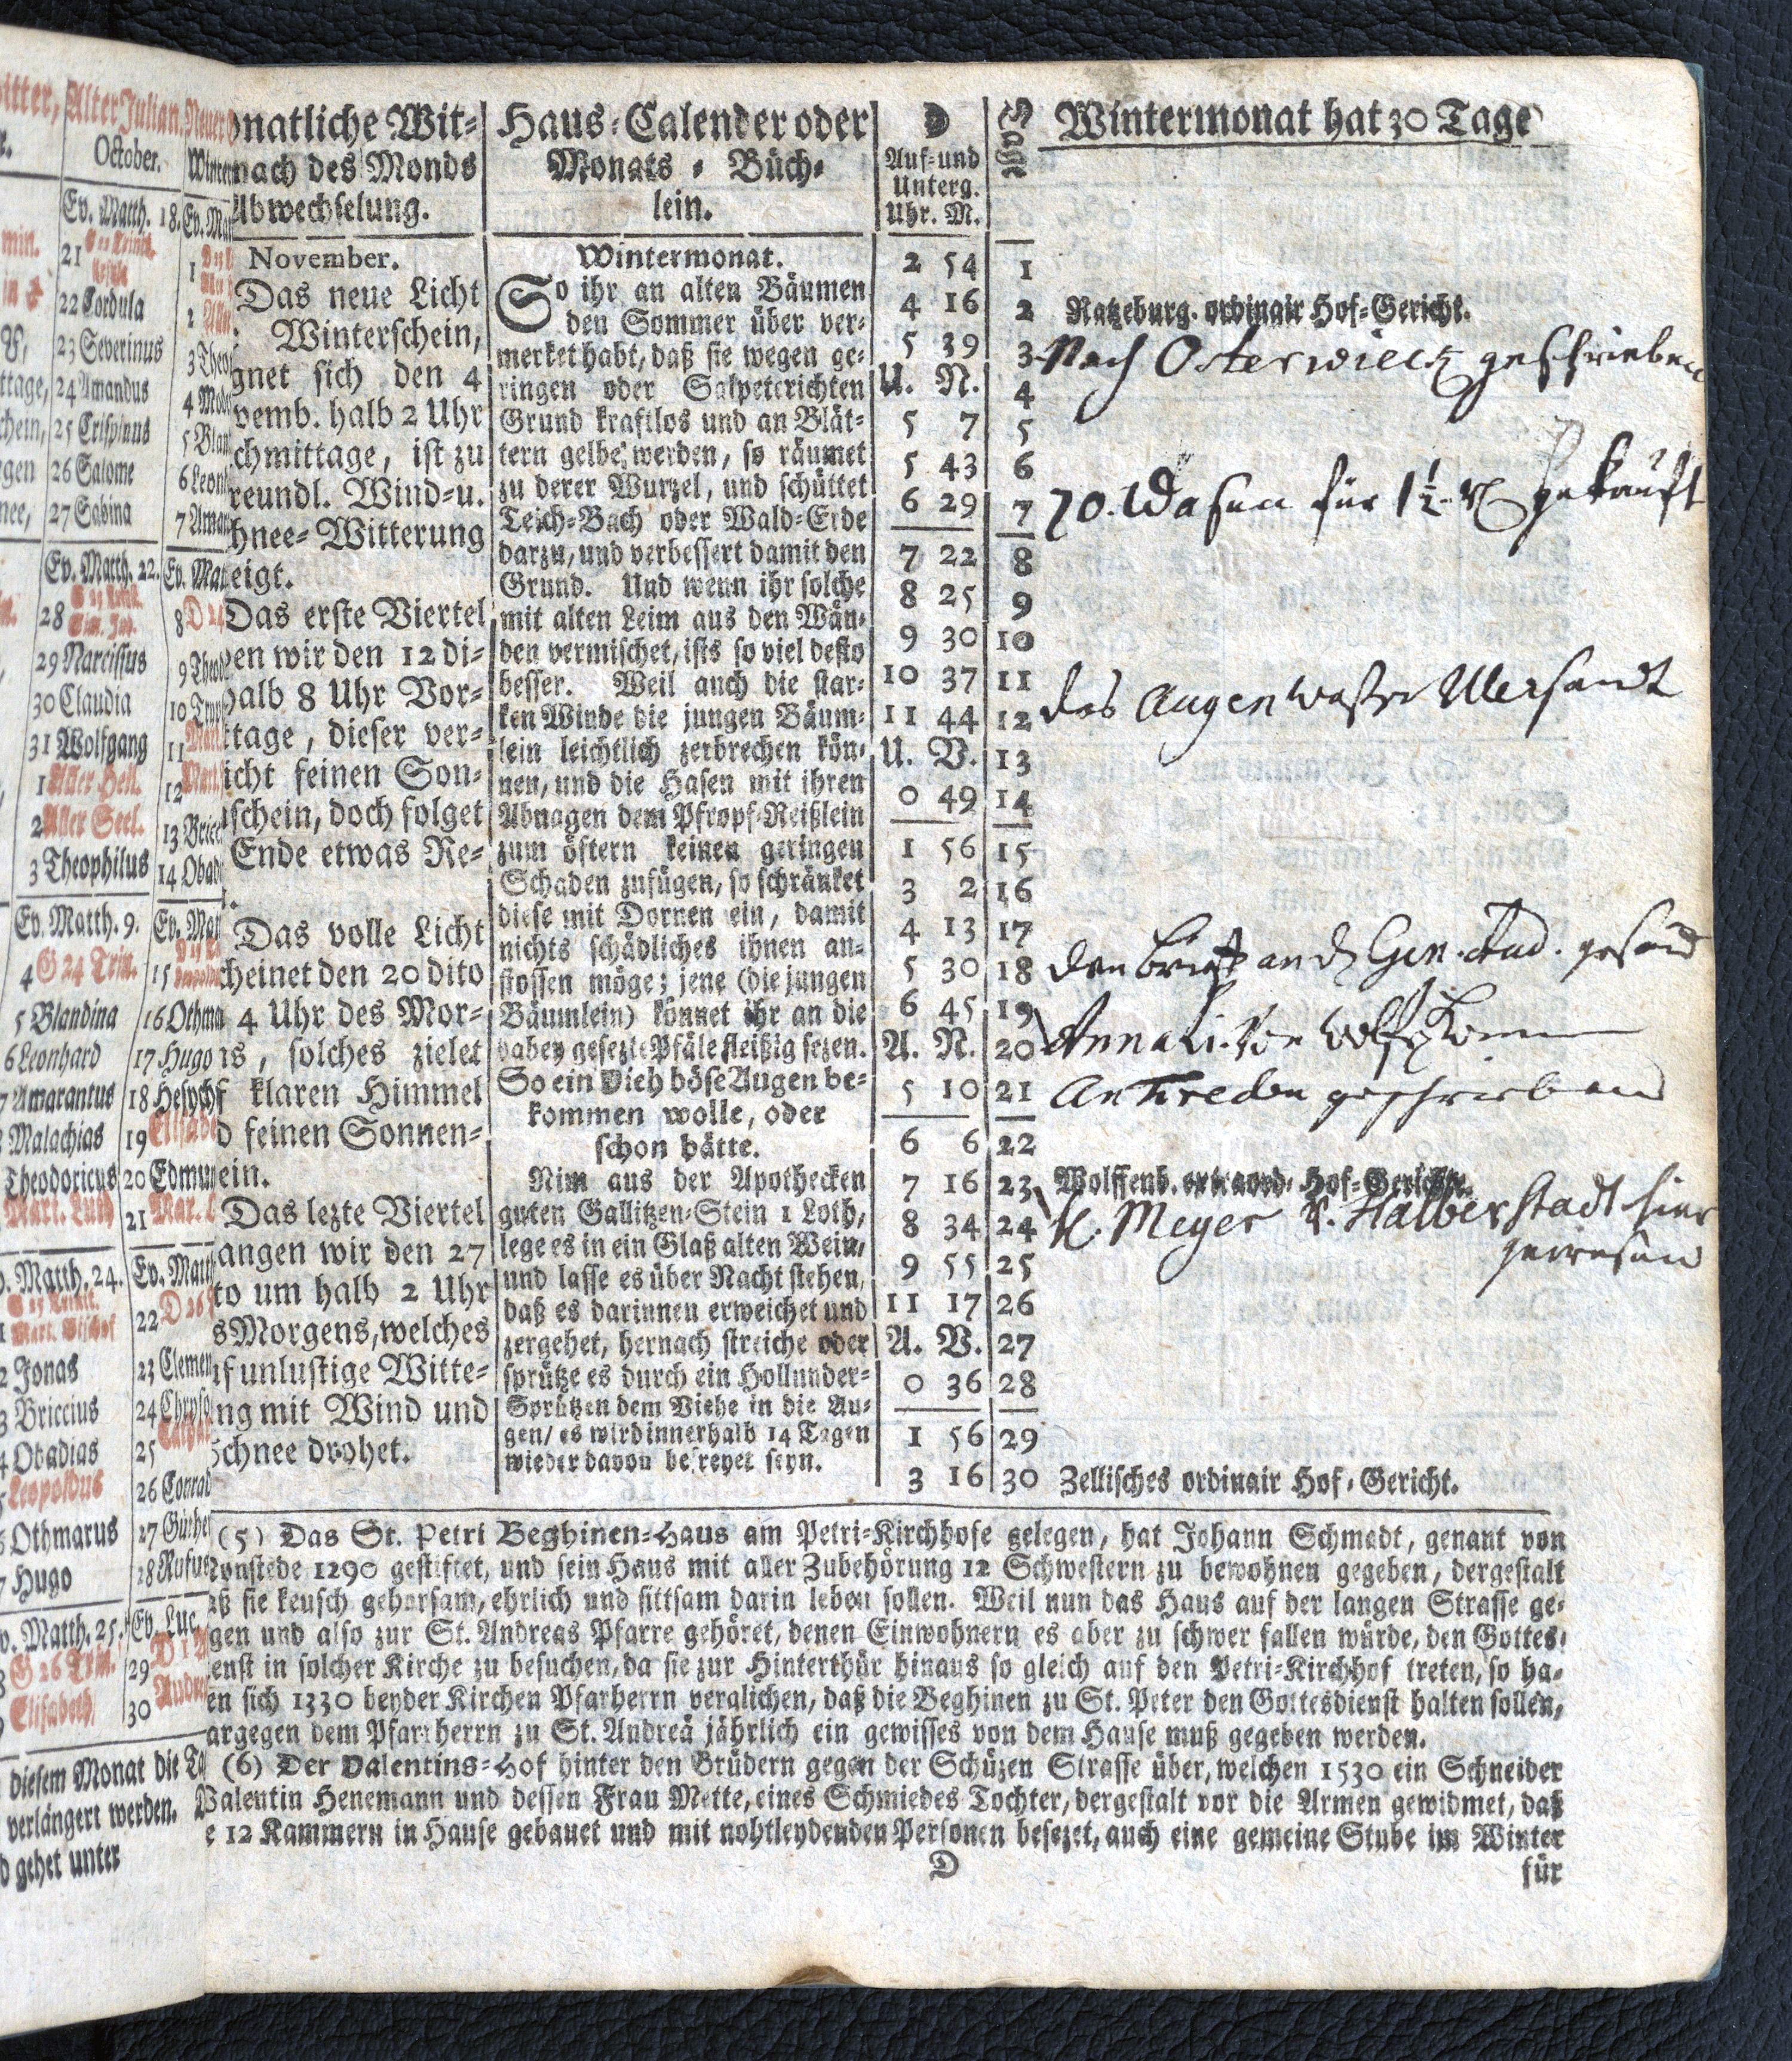 itter,
Alter Julian.
Neuer
October.
Winter
Ev. Matth. 18.
Ev. Mat
min.
21
1
22 Cordula
2
23 Severinus
3 Theo
ttage,
24 Amandus
4 Mode
chein,
25 Crispinus
5 Blan
gen
26 Salome
6 Leon
nee,
27 Sabina
7 Aman
Ev. Matth. 22.
Ev. Mat
28
8
29 Narcissus
9 Theod
30 Claudia
10 Tryp
31 Wolfgang
11 Mart.
1 Aller Heil.
12 Mart.
2 Aller Seel.
13 Bricc
3 Theophilus
14 Obad
Ev. Matth. 9.
Ev. Mat
4 G 24 Trin.
15
5 Blandina
16 Othma
6 Leonhard
17 Hugo
7 Amarantus
18 Hesych
Malachias
19 Elisabe
Theodoricus
20 Edmun
Mart. Luth
21 Mar.
Matth. 24.
Ev. Matt
Mart. Bischof
22 D 26
2 Jonas
23 Clemen
3 Briccius
24 Chryso
4 Obadias
25 Cathar
Leopoldus
26 Conrad
Othmarus
27 Günthe
7 Hugo
28 Rufus
v. Matth. 25.
Ev. Luc.
G 26 Trin.
29 D 1
Elisabeth
30 Andre
diesem Monat die Ta
verlängert werden.
d gehet unter
onatliche Wit-
nach des Monds
Abwechselung.
November.
Das neue Licht
Winterschein,
gnet sich den 4
vemb. halb 2 Uhr
chmittage, ist zu
reundl. Wind-u.
hnee-Witterung
eigt.
Das erste Viertel
en wir den 12 di-
halb 8 Uhr Vor-
ttage, dieser ver-
icht feinen Son-
schein, doch folget
Ende etwas Re-
Das volle Licht
cheinet den 20 dito
4 Uhr des Mor-
s, solches zielet
f klaren Himmel
d feinen Sonnen-
ein.
Das lezte Viertel
angen wir den 27
to um halb 2 Uhr
s Morgens, welches
f unlustige Witte-
ng mit Wind und
Schnee drohet.
Haus-Calender oder
Monats-Büch-
lein.
Wintermonat.
So ihr an alten Bäumen
den Sommer über ver-
merket habt, daß sie wegen ge-
ringen oder Salpeterichten
Grund kraftlos und an Blät-
tern gelbe werden, so räumet
zu derer Wurzel, und schüttet
Teich-Bach oder Wald-Erde
darzu, und verbessert damit den
Grund. Und wenn ihr solche
mit alten Leim aus den Wän-
den vermischet, ists so viel desto
besser. Weil auch die star-
ken Winde die jungen Bäum-
lein leichtlich zerbrechen kön-
nen, und die Hasen mit ihren
Abnagen dem Pfropf-Reißlein
zum öftern keinen geringen
Schaden zufügen, so schränket
diese mit Dornen ein, damit
nichts schädliches ihnen an-
stossen möge; jene (die jungen
Bäumlein) könnet ihr an die
dabey gesezte Pfäle fleißig sezen.
So ein Vieh böse Augen be-
kommen wolle, oder
schon hätte.
Nim aus der Apothecken
guten Gallitzen-Stein 1 Loth,
lege es in ein Glaß alten Wein,
und lasse es über Nacht stehen,
daß es darinnen erweichet und
zergehet, hernach streiche oder
sprütze es durch ein Hollunder-
Sprützen dem Viehe in die Au-
gen/ es wird innerhalb 14 Tagen
wieder davon befreyet seyn.
☽
Auf-und
Unterg.
Uhr. M.
2 54
4 16
5 39
U. N.
5 7
5 43
6 29
7 22
8 25
9 30
10 37
11 44
U. V.
0 49
1 56
3 2
4 13
5 30
6 45
A. N.
5 10
6 6
7 16
8 34
9 55
11 17
A. V.
0 36
1 56
3 16
Tage
Wintermonat hat 30 Tage
1
2 Ratzeburg. ordinair Hof-Gericht.
3 Nach Osterwieck geschrieben
4
5
6
7 70. Wasen für 1½ gekauft
8
9
10
11
12 das Augen wasser Übersandt
13
14
15
16
17
18 den brief an Gen. Aud. gesand
19
20 Anna Li. von
21 An geschrieben
22
23 Wolffenb. extraord. Hof-Gericht.
24 H. Meyer v. Halberstadt hier
gewesen
25
26
27
28
29
30 Zellisches ordinair Hof-Gericht.
(5) Das St. Petri Beghinen-Haus am Petri-Kirchhofe gelegen, hat Johann Schmedt, genant von
onstede 1290 gestiftet, und sein Haus mit aller Zubehörung 12 Schwestern zu bewohnen gegeben, dergestalt
aß sie keusch gehorsam, ehrlich und sittsam darin leben sollen. Weil nun das Haus auf der langen Strasse ge-
gen und also zur St. Andreas Pfarre gehöret, denen Einwohnern es aber zu schwer fallen würde, den Gottes-
enst in solcher Kirche zu besuchen, da sie zur Hinterthür hinaus so gleich auf den Petri-Kirchhof treten, so ha-
en sich 1330 beyder Kirchen Pfarherrn verglichen, daß die Beghinen zu St. Peter den Gottesdienst halten sollen,
argegen dem Pfarrherrn zu St. Andreä jährlich ein gewisses von dem Hause muß gegeben werden.
(6) Der Valentins-Hof hinter den Brüdern gegen der Schüzen Strasse über, welchen 1530 ein Schneider
Valentin Henemann und dessen Frau Mette, eines Schmiedes Tochter, dergestalt vor die Armen gewidmet, daß
e 12 Kammern in Hause gebauet und mit nohtleydenden Personen besezet, auch eine gemeine Stube im Winter
D
für